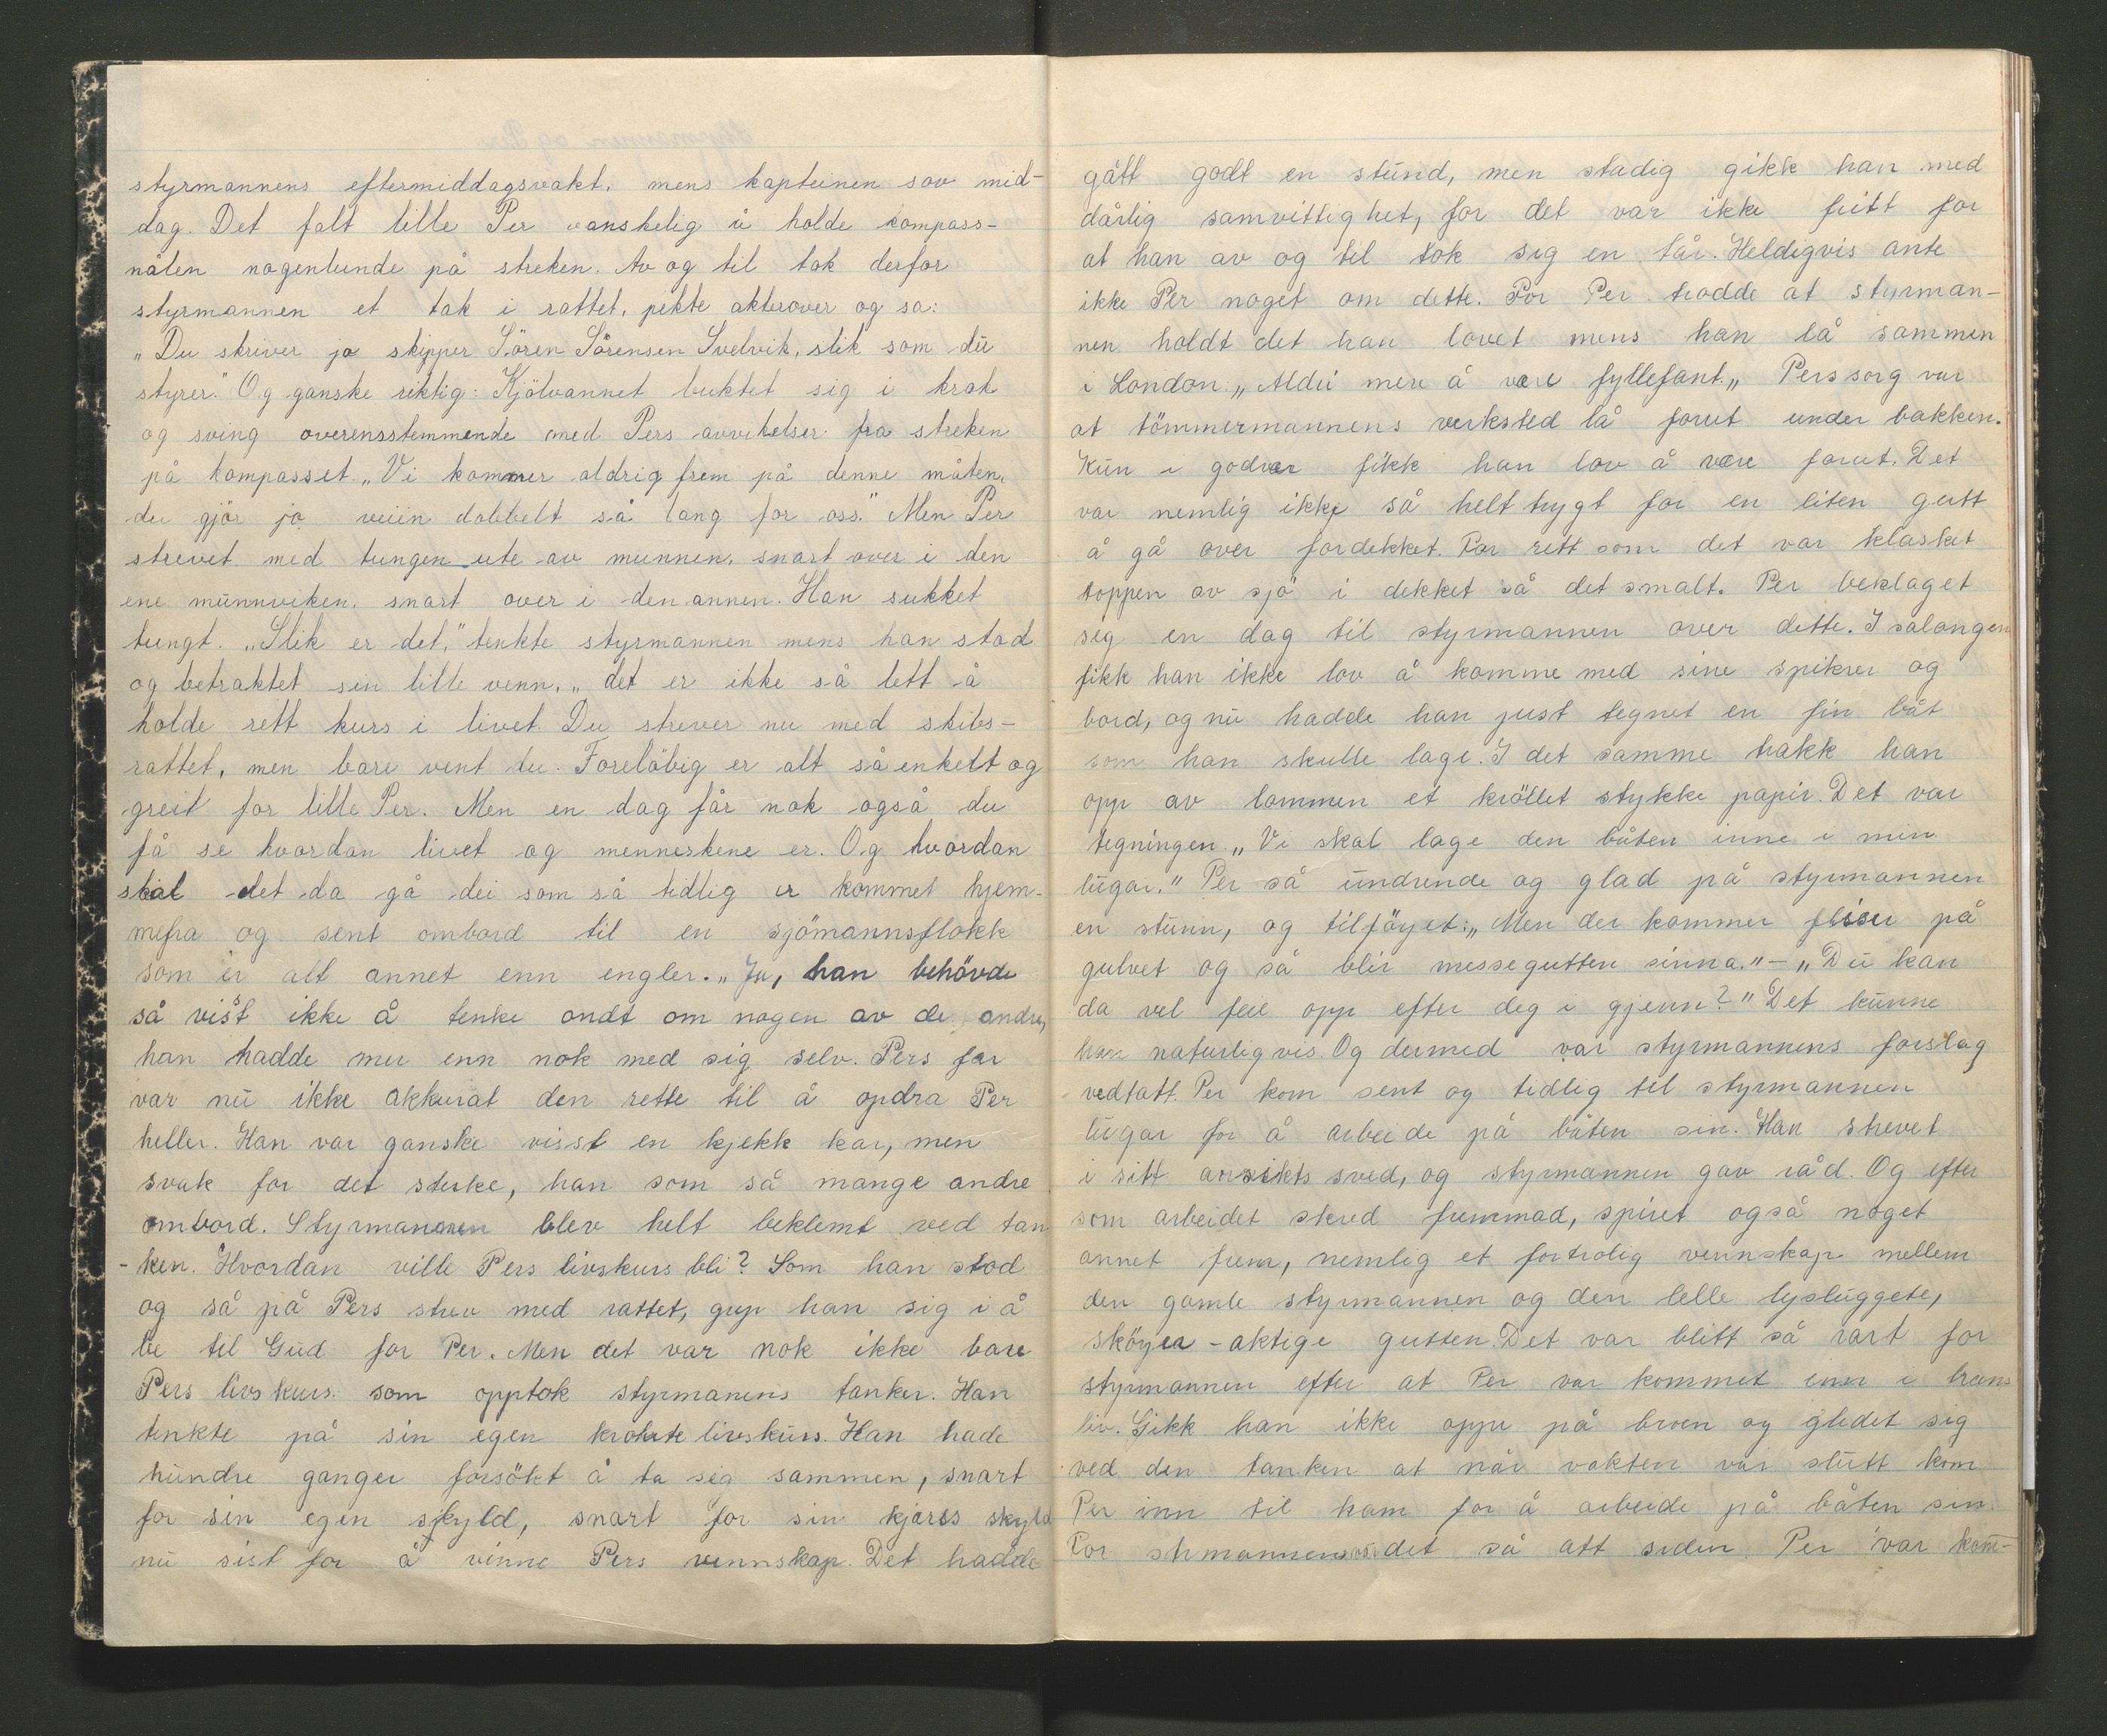 styrmannens eftermiddagsvakt, mens kapteinen sov mid-
dag. Det falt lille Per vanskelig å holde kompass-
nålen nogenlunde på streken. Av og til tok derfor
styrmannen et tak i rattet, pekte akterover og sa:
„Du skriver jo skipper Sören Sörensen Svelvik, slik som du
styrer." Og ganske riktig: Kjölvannet buktet sig i krok
og sving overensstemmende med Pers avvikelser fra streken
på kompasset. „Vi kommer aldrig frem på denne måten,
du gjör jo veiin dobbelt så lang for oss." Men Per
strevet med tungen ute av munnen, snart over i den
ene munnviken, snart over i den annen. Han sukket
tungt. „Slik er det," tenkte styrmannen mens han stod
og betraktet sin lille venn, „det er ikke så lett å
holde rett kurs i livet. Du strever nu med skibs-
rattet, men bare vent du. Forelöbig er alt så enkelt og
greit for lille Per. Men en dag får nok også du
få se hvordan livet og menneskene er. Og hvordan
skal det da gå dei som så tidlig er kommet hjem-
mefra og sent ombord til en sjömannsflokk
som er alt annet enn engler. „Ja, han behövde
så visst ikke å tenke ondt om nogen av de andre,
han hadde mer enn nok med sig selv. Pers far
var nu ikke akkurat den rette til å opdra Per
heller. Han var ganske visst en kjekk kar, men
svak for det sterke, han som så mange andre
ombord. Styrmannen blev helt beklemt ved tan
-ken. Hvordan ville Pers livskurs bli? Som han stod
og så på Pers strev med rattet, grep han sig i å
be til Gud for Per. Men det var nok ikke bare
Pers livskurs som opptok styrmanens tanker. Han
tenkte på sin egen krokete livskurs. Han hade
hundre ganger forsökt å ta sig sammen, snart
for sin egen skyld, snart for sin kjæress skyld
nu sist for å vinne Pers vennskap. Det hadde
gått godt en stund, men stadig gikk han med
dårlig samvittighet, for det var ikke fritt for
at han av og til tok sig en tår. Heldigvis ante
ikke Per noget om dette. For Per trodde at styrman-
nen holdt det han lovet mens han lå sammen
i London. „Aldri mere å være fyllefant.„ Pers sorg var
at tömmermannens verksted lå forut under bakken.
Kun i godvær fikk han lov å være forut. Det
var nemlig ikke så helt trygt for en liten gutt
å gå over fordekket. For rett som det var klasket
toppen av sjö i dekket så det smalt. Per beklaget
sig en dag til styrmannen over dette. I salongen
fikk han ikke lov å komme med sine spikrer og
bord, og nu hadde han just tegnet en fin båt
som han skulle lage. I det samme hakk han
opp av lommen et kröllet stykke papir. Det var
tegningen. „Vi skal lage den båten inne i min
lugar." Per så undrende og glad på styrmannen
en stunn, og tilföyet: „Men der kommer fliser på
gulvet og så blir messegutten sinna." – „Du kan
da vel feie opp efter deg i gjenn?" Det kunne
han naturligvis. Og dermed var styrmannens forslag
vedtatt. Per kom sent og tidlig til styrmannen
lugar for å arbeide på båten sin. Han strevet
i sitt ansikts sved, og styrmannen gav råd. Og efter
som arbeidet skred fremmad, spiret også noget
annet frem, nemlig et fortrolig vennskap mellem
den gamle styrmannen og den lelle lysluggete,
sköyer-aktige gutten. Det var blitt så rart for
styrmannen efter at Per var kommet inn i hans
liv. Gikk han ikke oppe på broen og gledet sig
ved den tanken at når vakten var slutt kom
Per inn til ham for å arbeide på båten sin.
For strmannen var det så att siden Per var kom-